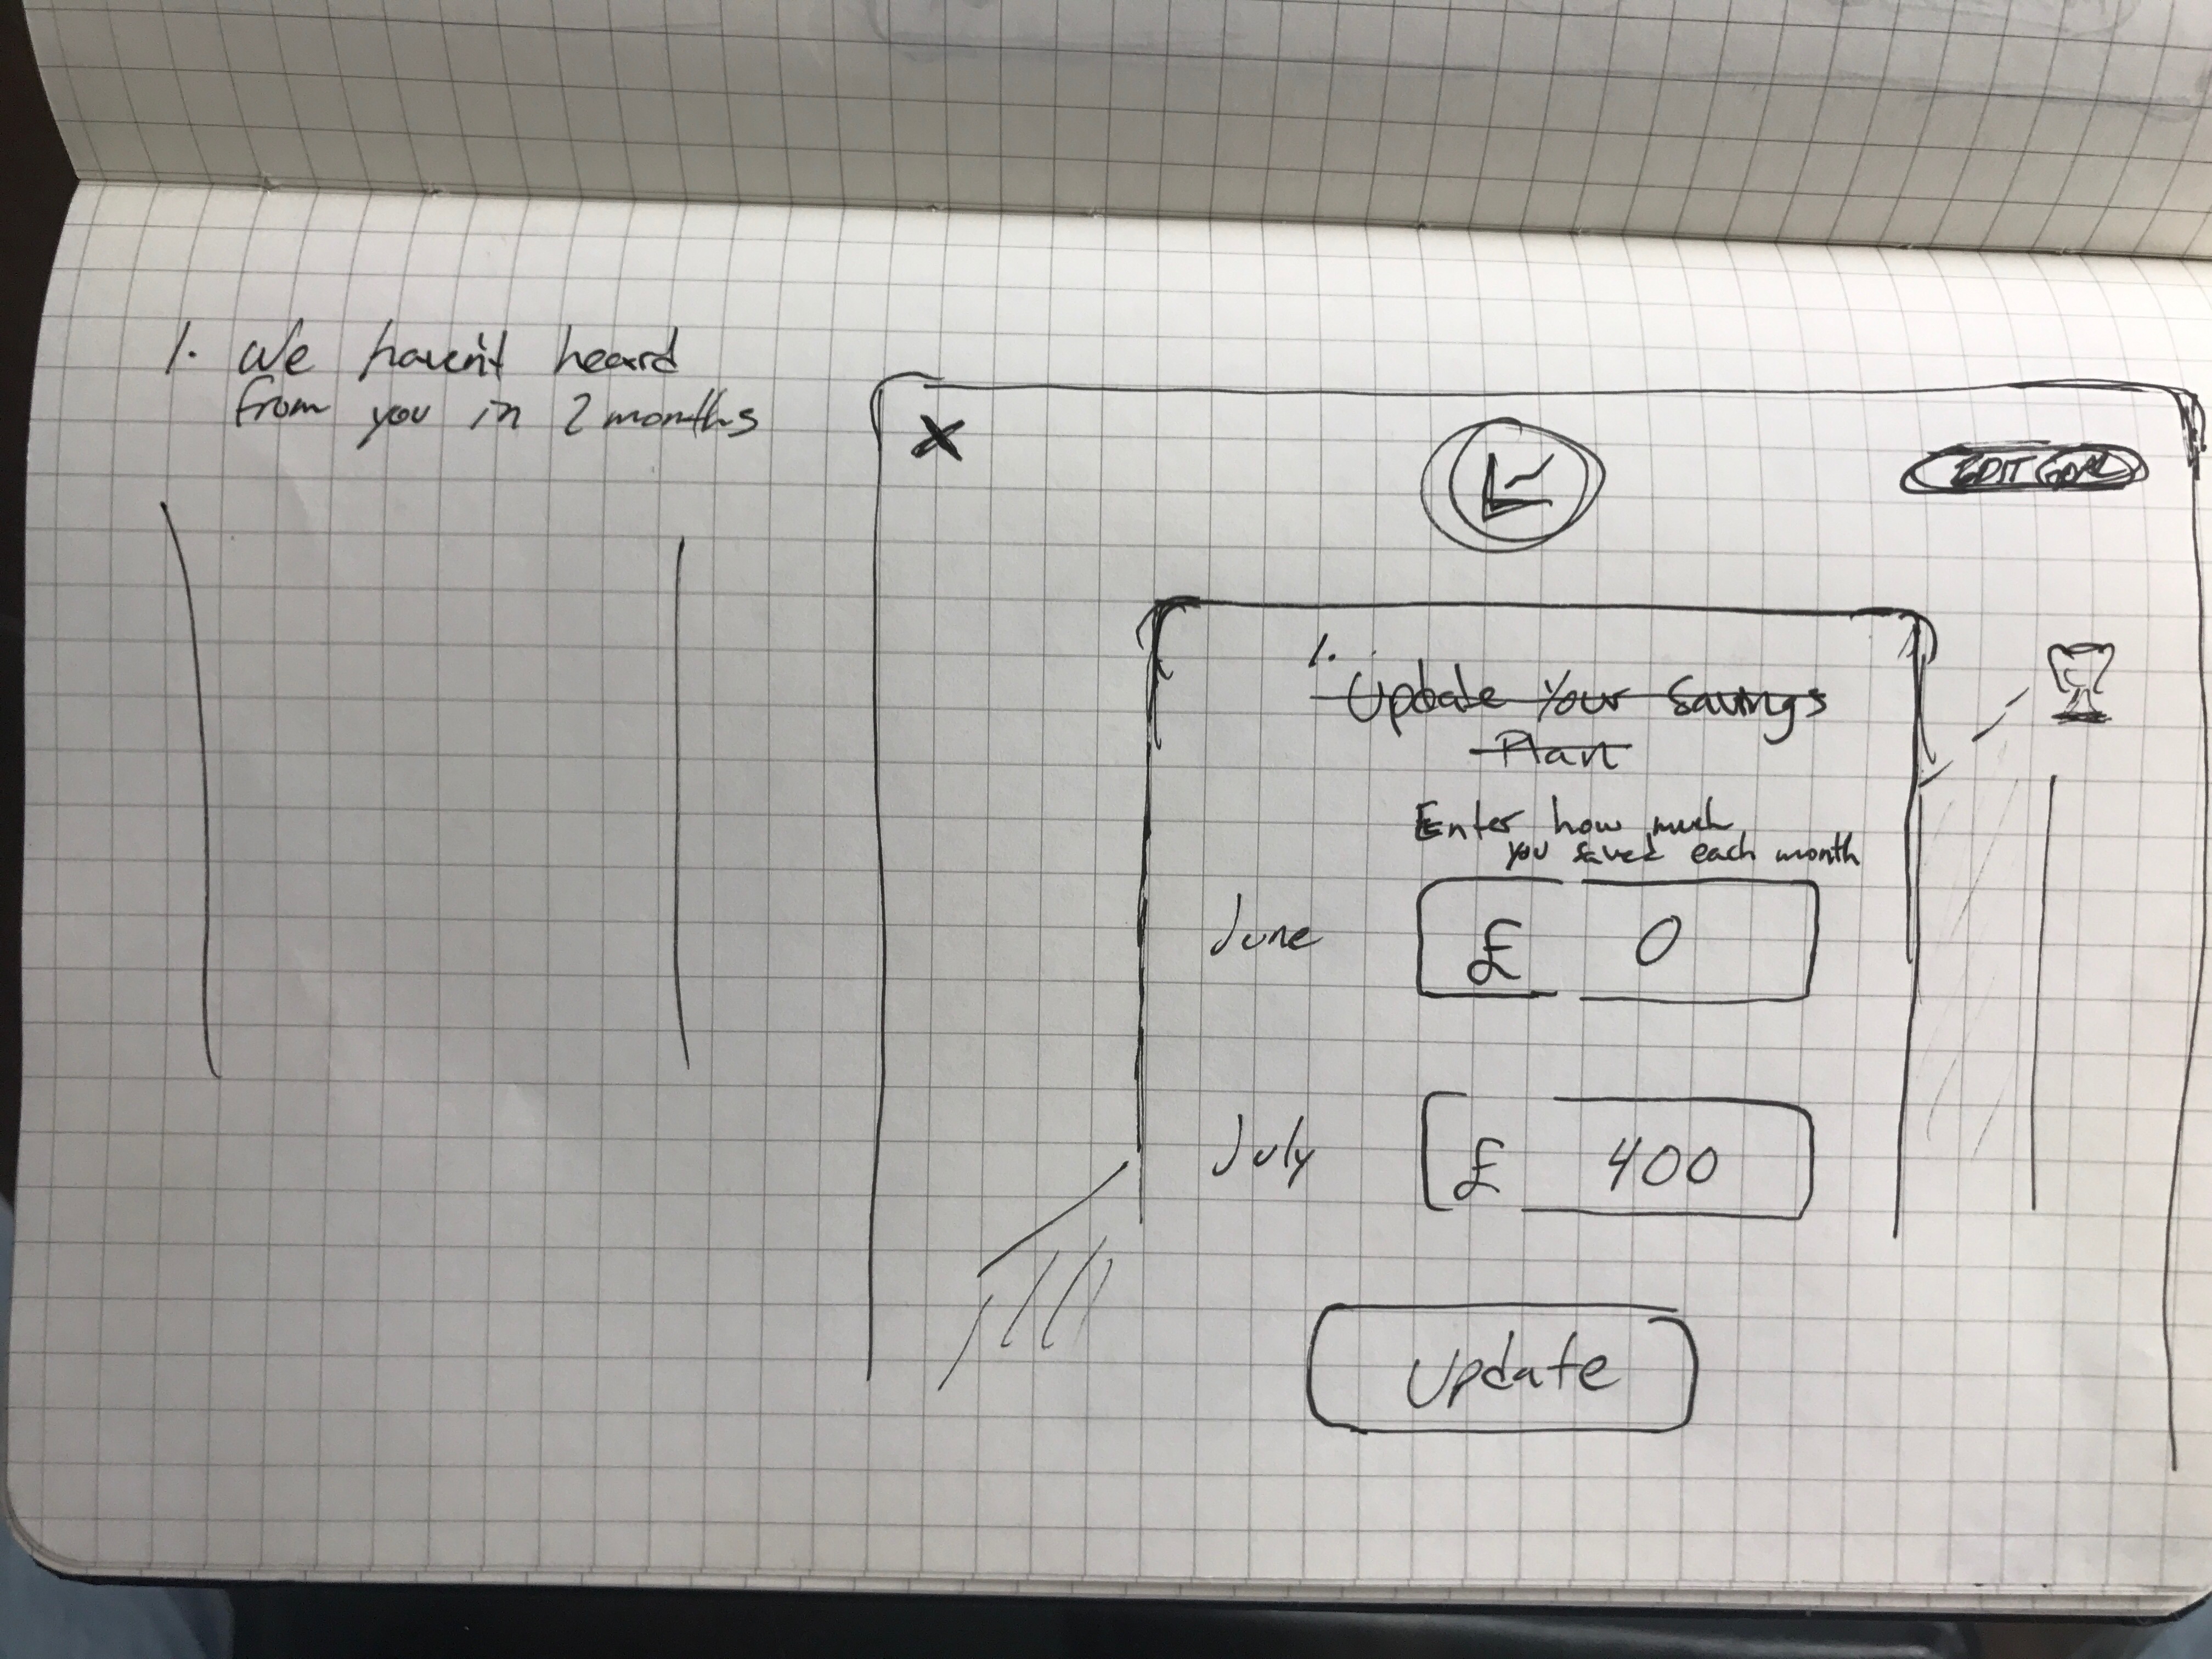 1. We haven't heard
from you in 2 months
X
EDIT GOAL
1.
Update Your Savings
Plan
Enter how much
you saved each month
June £ 0
July £ 400
Update